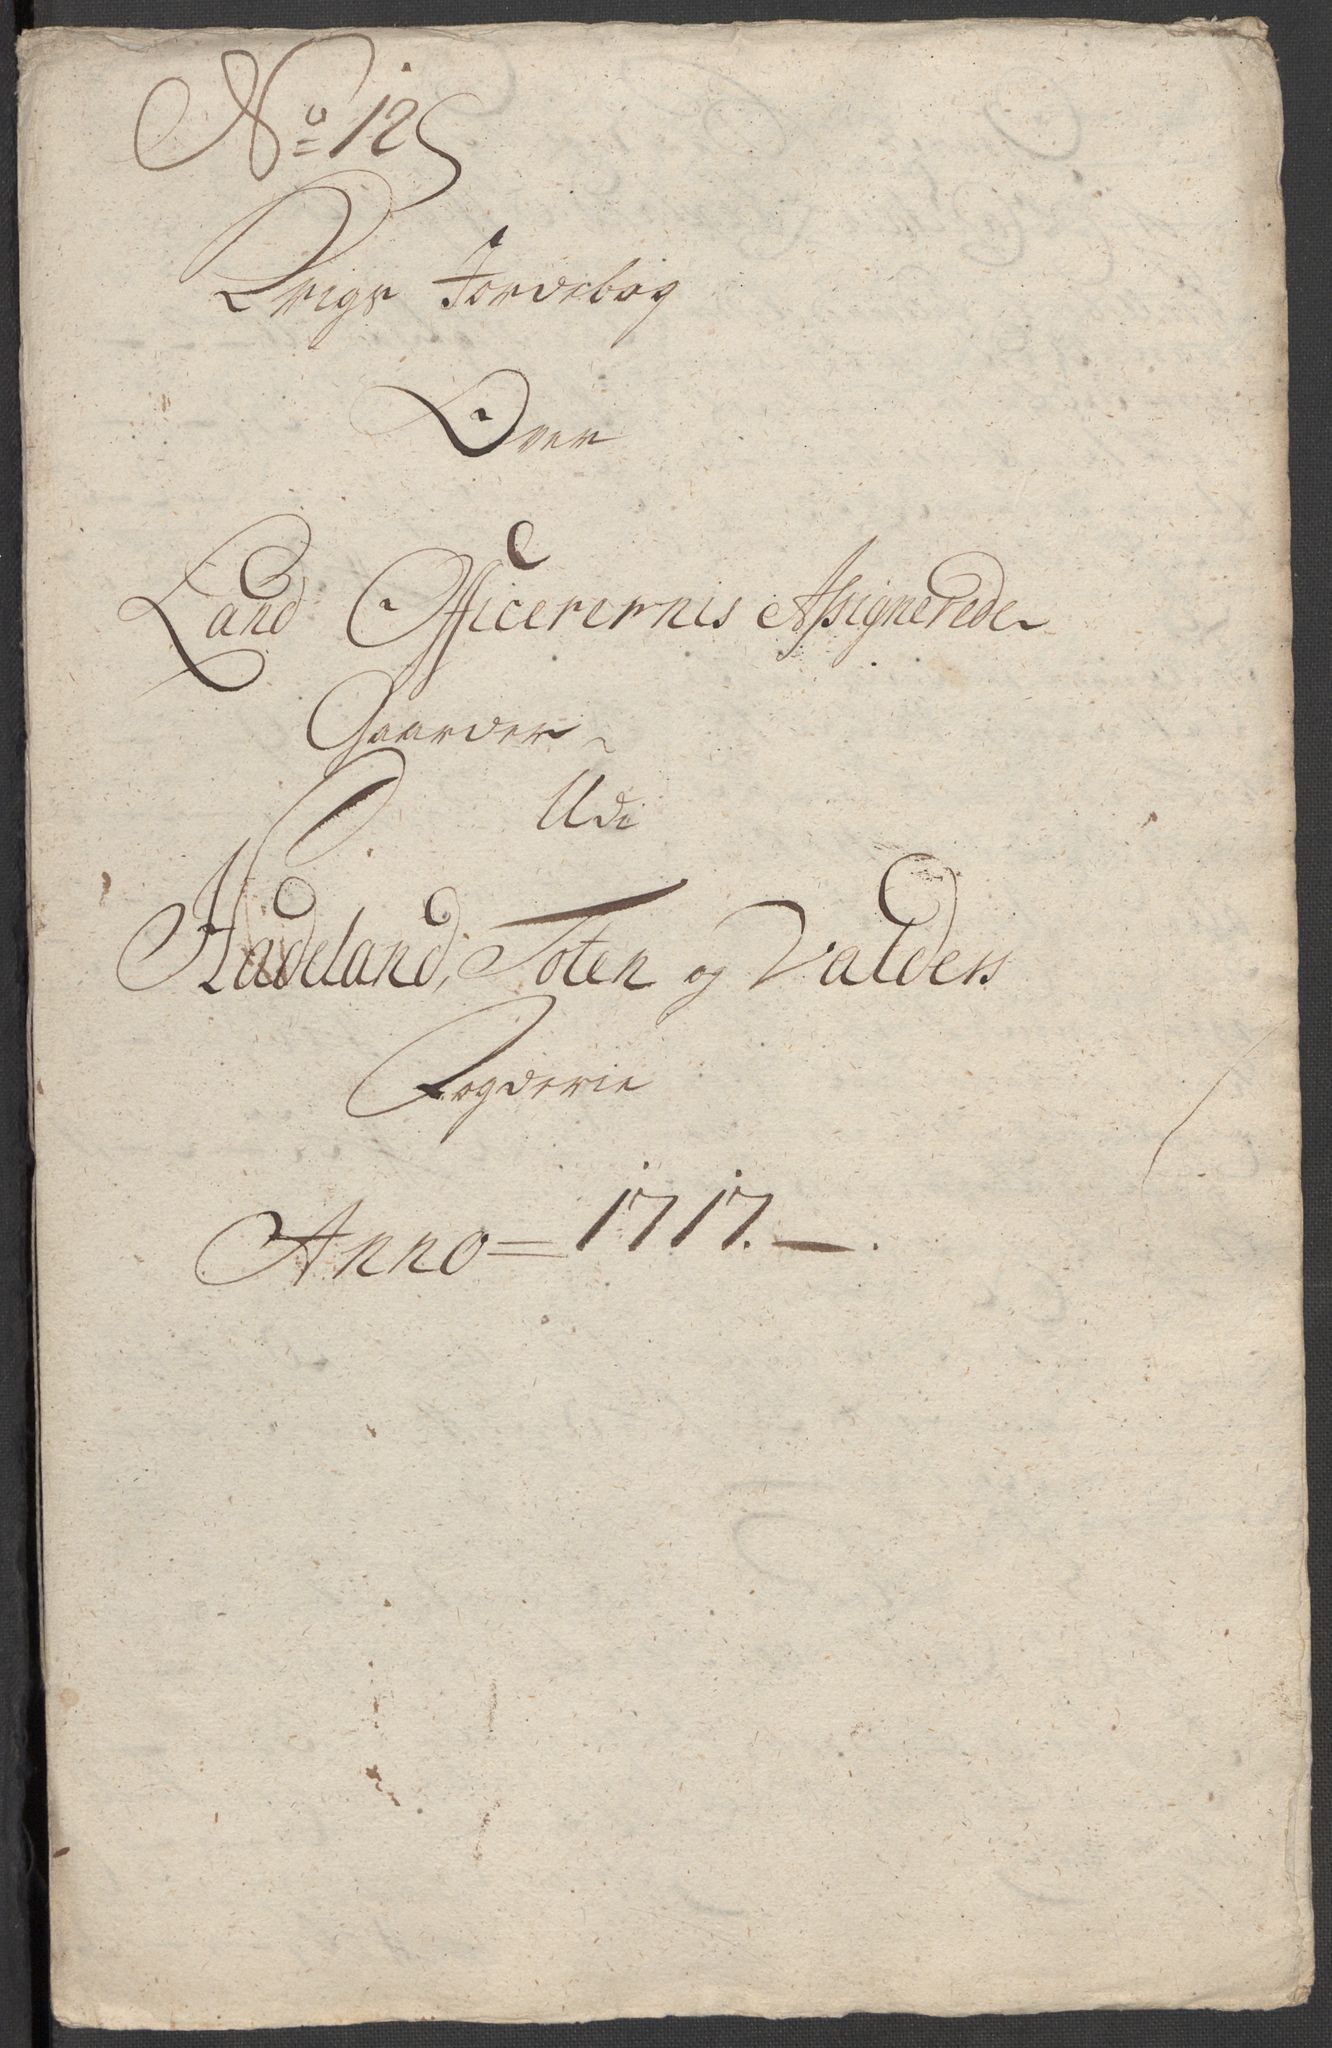 No 12
Krigs Jordebog
Over
Land Officerernis Assignerede
Gaarder
Udi
Hadeland, Toten og Valders
Fogderie
Anno = 1717. —.